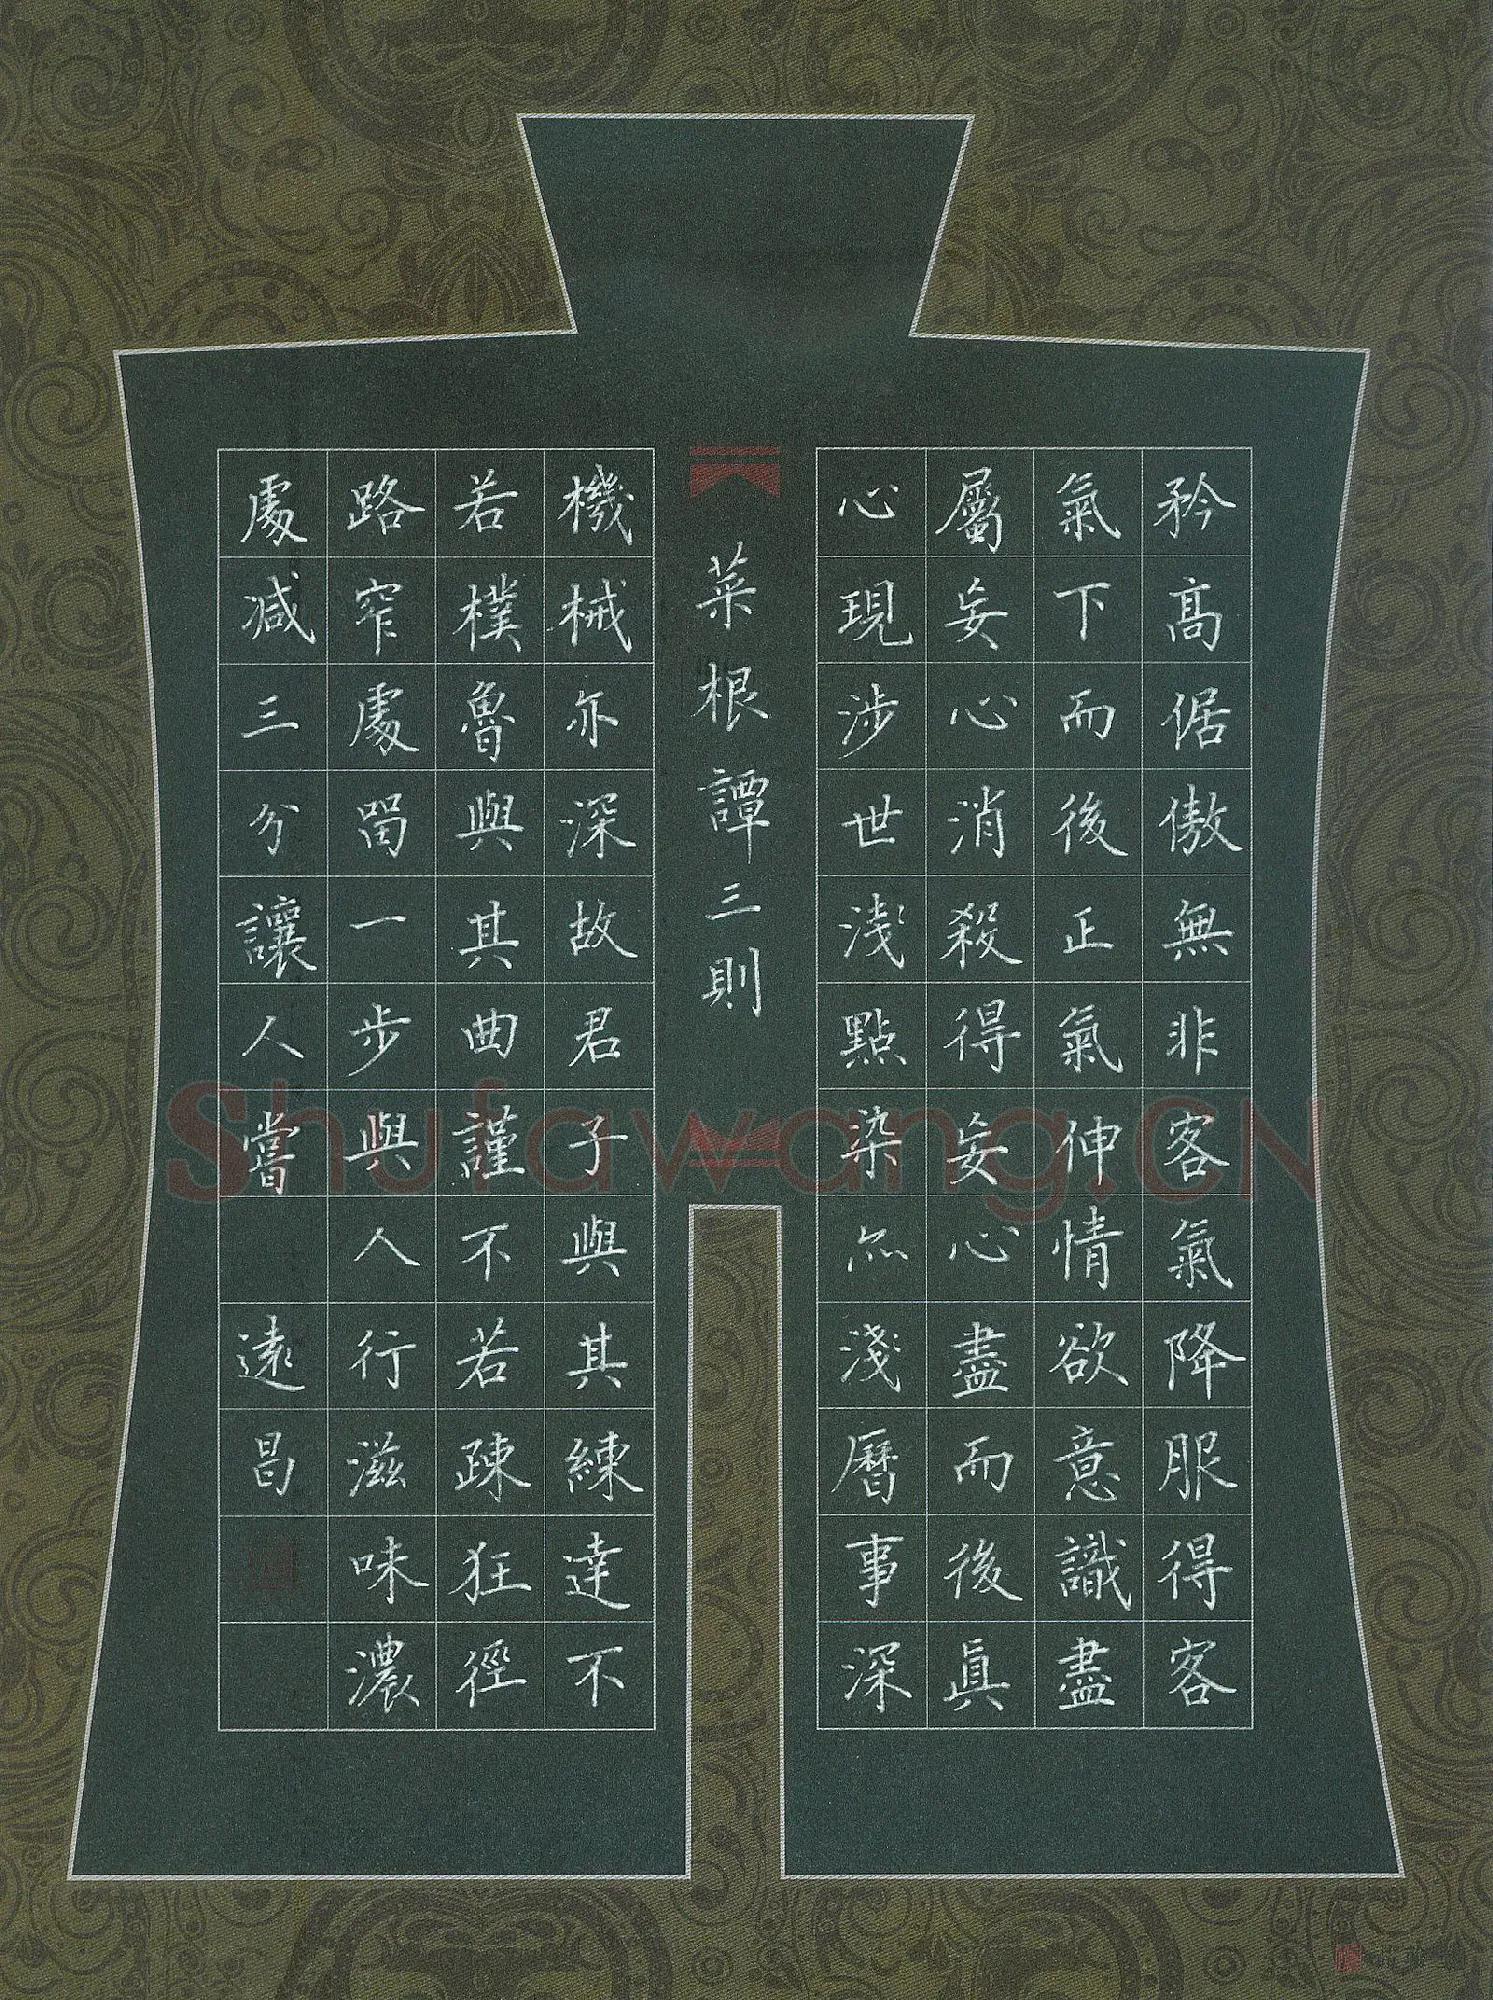 矜高倨傲無非客氣降服得客
氣下而後正氣伸情欲意識盡
屬妄心消殺得妄心盡而後眞
心現涉世淺點染亦淺曆事深
菜根譚三則
機械亦深故君子與其練達不
若樸魯與其曲謹不若疎狂徑
路窄處留一步與人行滋味濃
處减三分讓人嘗
遠昌
Shufawang.CN